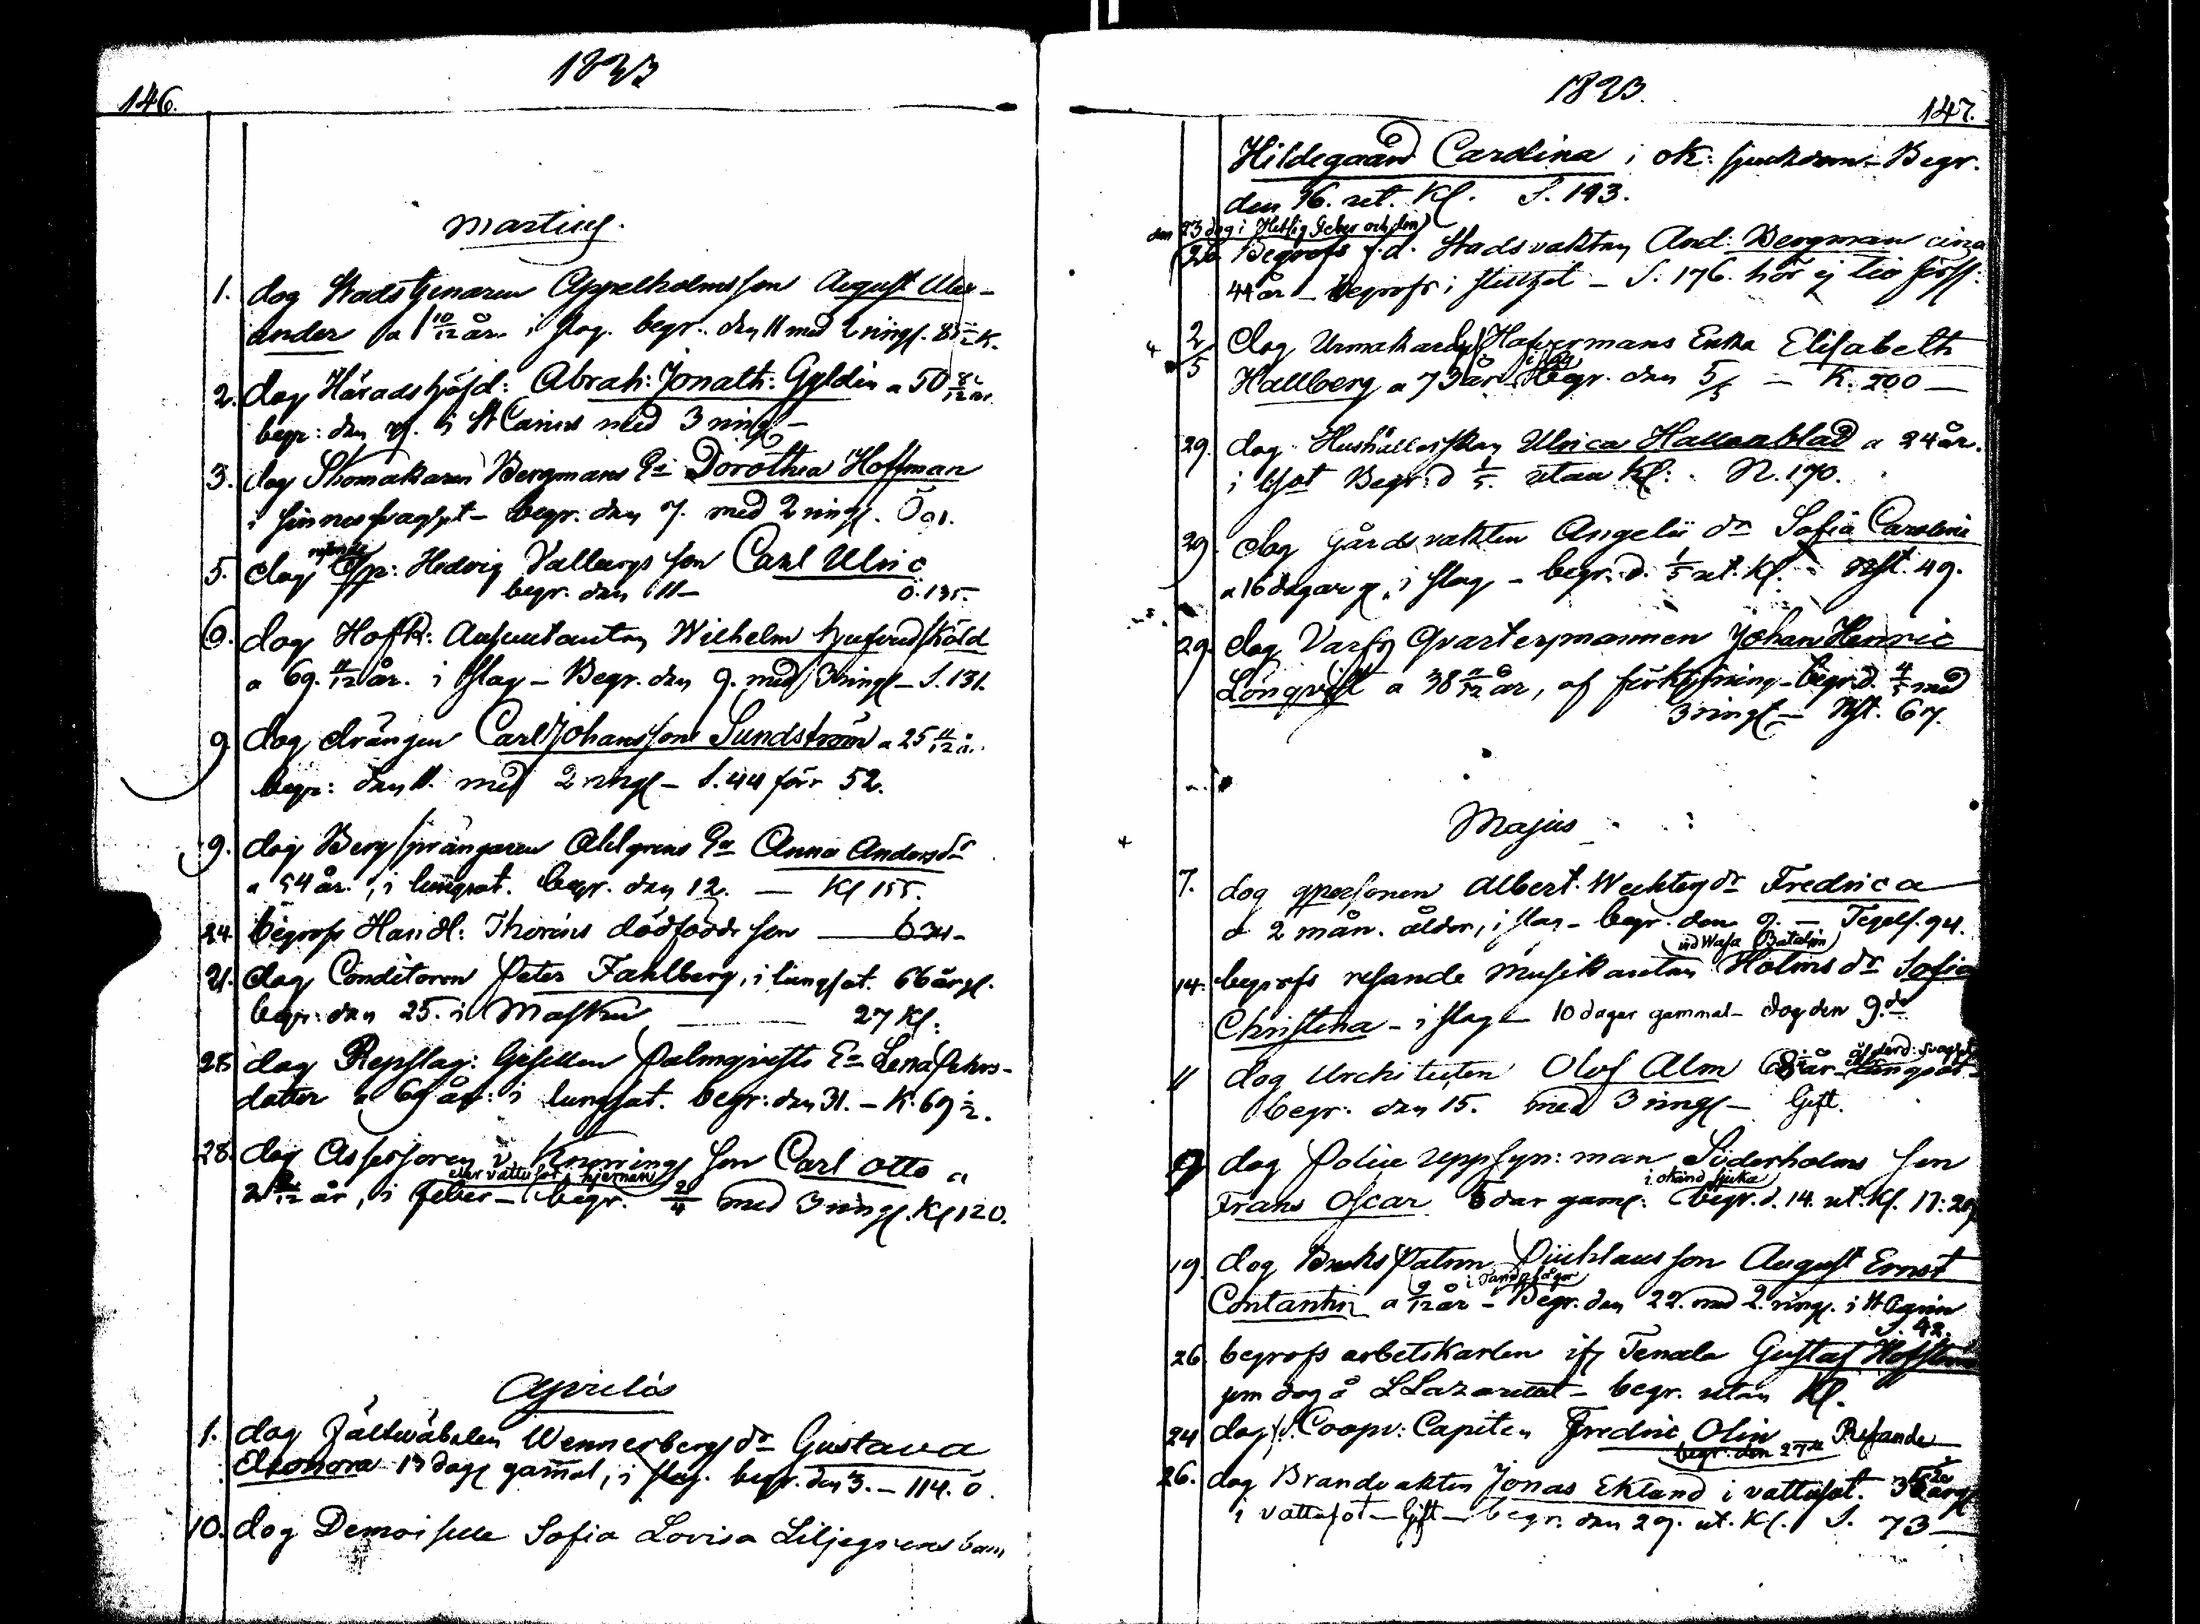 146.
1823
Martius.
1. dog Stadstjenaren Appelholms son August Alex-
ander a 1 10/12 år. i slag. begr. den 11 med 2 ringg. 85 1/2 K.
2. dog Häradshöfd: Abrah: Jonath: Gyldén a 50 8/12 år.
begr: den 7. i St Carins med 3 ringg.
3. dog Skomakaren Bergmans Dorothea Hoffman
i sinnessvaghet - begr. den 7. med 2 ringg.
5. dog Hedvig Vallbergs son Carl Ulric
begr. den 11 - Ö. 135.
6. dog Hofr: Auscultanten Wilhelm
a 69. 11/12 år. i slag - Begr. den 9. med 3 ringg - S. 131.
9. dog drängen Carl Johansson Sundström a 25 11/12 å.
begr: den 11. med 2 ringg - S. 44 förr 52.
9. dog Bergsprängaren Ahlgrens Anna Andersdr
a 54 år., i lungsot. begr. den 12. — Kl 155.
24. begrofs Handl: Thorins dödfödde son
21. dog Conditoren Peter Fahlberg, i lungsot. 66 år g.
begr: den 25. i Masku — 27 Kl:
28 dog Repslag: Gesellen Palmqvists Lena Pehrs-
dotter a 69 år: i lungsot. begr: den 31. - K. 69 1/2.
28. dog Assessoren v. Knorrings son Carl Otto a
eller vattusot i hjernan
2 år, i feber - begr. 2/4 med 3 ringg. Kl 120.
Aprilis
1. dog Fältväbelen Wennerbergs dr Gustava
Eleonora 13 dag gamal, i slag. begr. den 3. - 114. Ö.
10. dog Demoiselle Sofia Lovisa Liljegrens barn
1823.
147.
Hildegaard Carolina i ok: sjukdom - Begr.
den 16. ut. Kl. S. 193.
den 23 dog i Hetsig feber och den
26 Begrofs f.d. Stadsvakten And: Bergman circa
44 år - begrofs i - S. 176. hör ej till förss:
2/5 dog Urmakaren Hafvermans Enka Elisabeth
i slag
Hallberg a 73 år - Begr. den 5/5 - K. 200 -
29. dog Hushållerskan Ulrica a 24 år.
i Begr d 1/5. utan Kl: N. 170.
29. dog gårdsvakten Angelii dr Sofia Carolina
a 16 dagar g. i slag - begr. d. 1/5 ut. Kl. - 49.
29. dog Varfs Qvartersmannen Johan Henric
Lönqvist a 38 år, af förkylning - begr. d. 4/5 med
3 ringg - Nst. 67.
Majus
7. dog gpersonen Albert. Wecksten dr Fredrica
a 2 mån. ålder, i slag - begr. den 9. - Tegels. 94.
vid Wasa Bataljon
14. begrofs resande Musikanten Holms dr Sofia
Christina - i slag - 10 dagar gammal - dog den 9.de
11 dog Architecten Olof Alm år
begr. den 15. med 3 ringg - Gift.
9 dog Police uppsyn: man Söderholms son
i okänd sjuka
Frans Oscar 5 dar gaml: begr. d. 14. ut. Kl. 17: 29
19. dog Bruks Patron son August Ernst
Contantin a 9/12 år - Begr. den 22. med 2. ringg. i
S. 42.
26. begrofs arbetskarlen ifr Tenala Gustaf
som dog å L Lazarettet - begr. utan Kl.
24 dog Coopv: Capiten Fredric Olin Resande
begr. den 27de
26. dog Brandvakten Jonas Eklund i vattusot.
i vattusot - Gift - begr. den 29. ut. Kl. S. 73 -